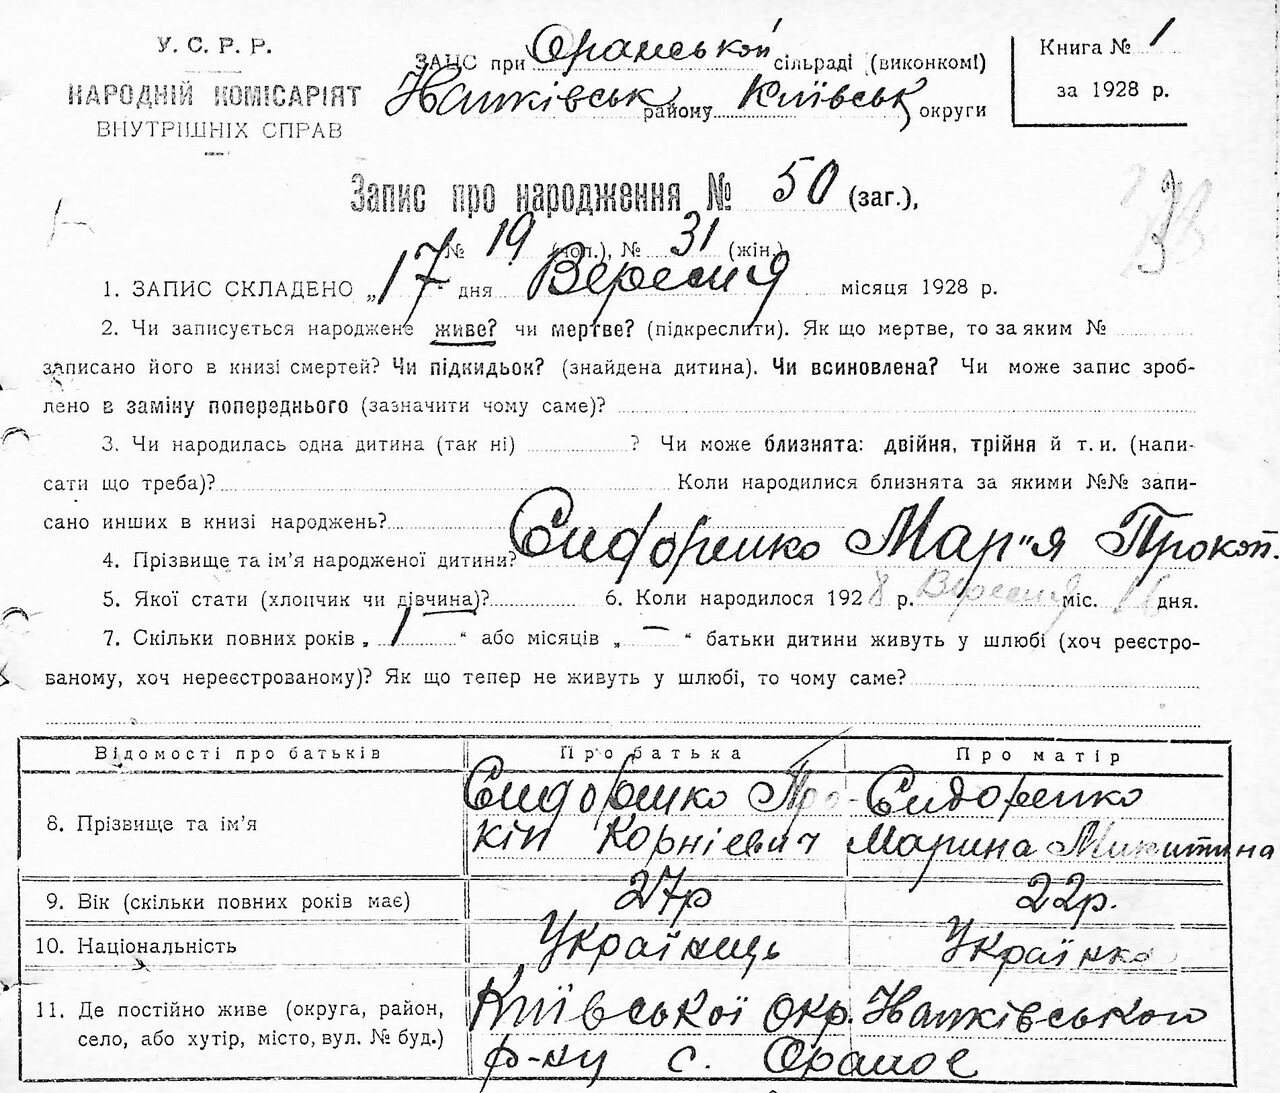 У. С. Р. Р.
НАРОДНІЙ КОМІСАРІЯТ
ВНУТРІШНІХ СПРАВ
ЗАГС при Оранській сільраді (виконкомі)
району Київськ округи
Книга № 1
за 1928 р.
Запис про народження № 50 (заг.),
№ 19 (чол.), № 31 (жін.)
1. ЗАПИС СКЛАДЕНО „17" дня Вересня місяця 1928 р.
2. Чи записується народжене живе? чи мертве? (підкреслити). Як що мертве, то за яким №
записано його в книзі смертей? Чи підкидьок? (знайдена дитина). Чи всиновлена? Чи може запис зроб-
лено в заміну попереднього (зазначити чому саме)?
3. Чи народилась одна дитина (так ні) ? Чи може близнята: двійня, трійня й т. и. (напи-
сати що треба)? Коли народилися близнята за якими №№ запи-
сано инших в книзі народжень?
4. Прізвище та ім'я народженої дитини? Сидоренко Мар"я Прокоп.
5. Якої стати (хлопчик чи дівчина)? 6. Коли народилося 1928 р. Вересня міс. 16 дня.
7. Скільки повних років „ 1 " або місяців „ — " батьки дитини живуть у шлюбі (хоч реєстро-
ваному, хоч нереєстрованому)? Як що тепер не живуть у шлюбі, то чому саме?
Відомості про батьків Про батька Про матір
8. Прізвище та ім'я Сидоренко Про- Сидоренко
кіп Корнієвич Марина Микитина
9. Вік (скільки повних років має) 27р 22р.
10. Національність Українець Українка
11. Де постійно живе (округа, район,
село, або хутір, місто, вул. № буд.)
Київської Окр.
р-ну с. Ораное